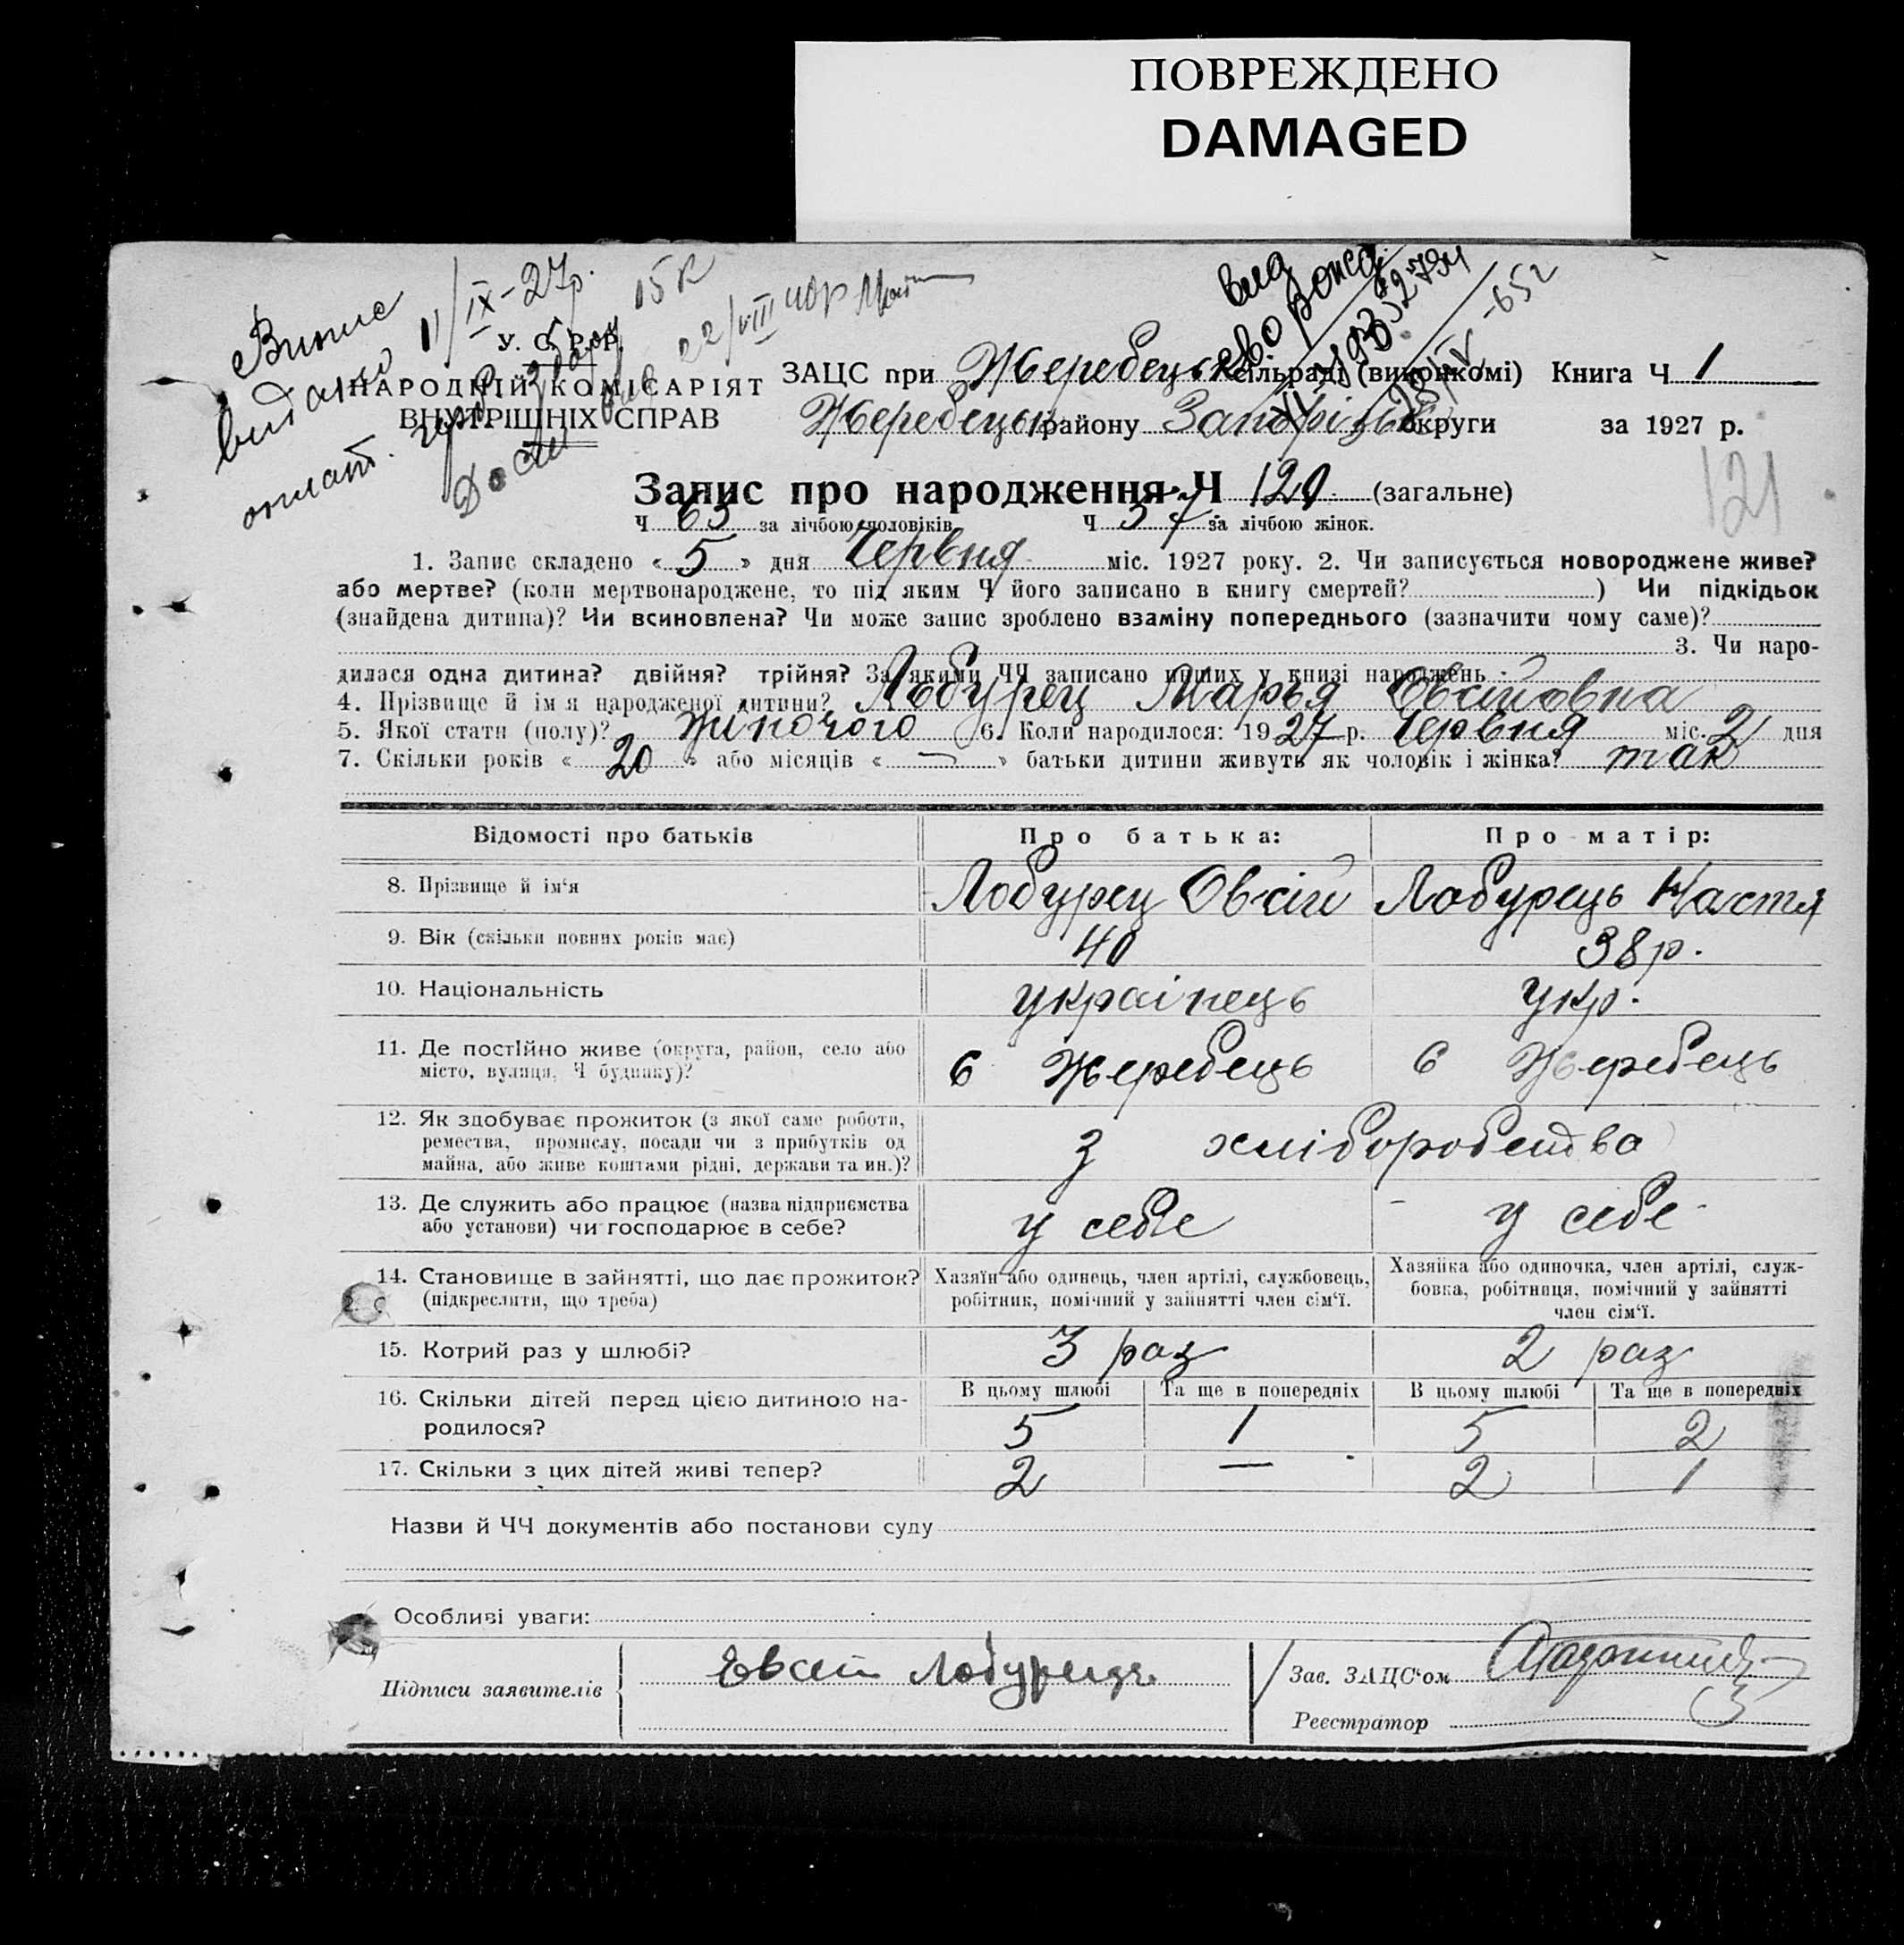 ПОВРЕЖДЕНО
DAMAGED
Випис
видано 11/IX-27р.
оплат.
15 к
22/VIII
вид
У. С. Р. Р.
НАРОДНІЙ КОМІСАРІЯТ
ВНУТРІШНІХ СПРАВ
ЗАЦС при Жеребецьк сільраді (виконкомі) Книга Ч 1
Жеребецьк району Запорізьк округи за 1927 р.
121
Запис про народження Ч 120 (загальне)
Ч 63 за лічбою чоловіків Ч 57 за лічбою жінок.
1. Запис складено « 5 » дня Червня міс. 1927 року. 2. Чи записується новороджене живе?
або мертве? (коли мертвонароджене, то під яким Ч його записано в книгу смертей? ) Чи підкідьок
(знайдена дитина)? Чи всиновлена? Чи може запис зроблено взаміну попереднього (зазначити чому саме)?
3. Чи наро-
дилася одна дитина? двійня? трійня? За якими ЧЧ записано инших у книзі народжень
4. Прізвище й ім'я народженої дитини? Лобурец Марья Овсійовна
5. Якої стати (полу)? жіночого 6. Коли народилося: 1927 р. Червня міс. 2 дня
7. Скільки років « 20 » або місяців « — » батьки дитини живуть як чоловік і жінка? так
Відомості про батьків Про батька: Про матір:
8. Прізвище й ім'я Лобурец Овсій Лобурець Настя
9. Вік (скільки повних років має) 40 38 р.
10. Національність українець укр.
11. Де постійно живе (округа, район, село або
місто, вулиця, Ч будинку)? с Жеребець с Жеребець
12. Як здобуває прожиток (з якої саме роботи,
ремества, промислу, посади чи з прибутків од
майна, або живе коштами рідні, держави та ин.)? з хліборобства
13. Де служить або працює (назва підприємства
або установи) чи господарює в себе? у себе у себе
14. Становище в зайнятті, що дає прожиток?
(підкреслити, що треба)
Хазяїн або одинець, член артілі, службовець,
робітник, помічний у зайнятті член сім'ї.
Хазяйка або одиночка, член артілі, служ-
бовка, робітниця, помічний у зайнятті
член сім'ї.
15. Котрий раз у шлюбі? 3 раз 2 раз
16. Скільки дітей перед цією дитиною на-
родилося?
В цьому шлюбі Та ще в попередніх В цьому шлюбі Та ще в попередніх
5 1 5 2
17. Скільки з цих дітей живі тепер? 2 — 2 1
Назви й ЧЧ документів або постанови суду
Особливі уваги:
Підписи заявителів Евсей Лобурець
Зав. ЗАЦС'ом
Реєстратор